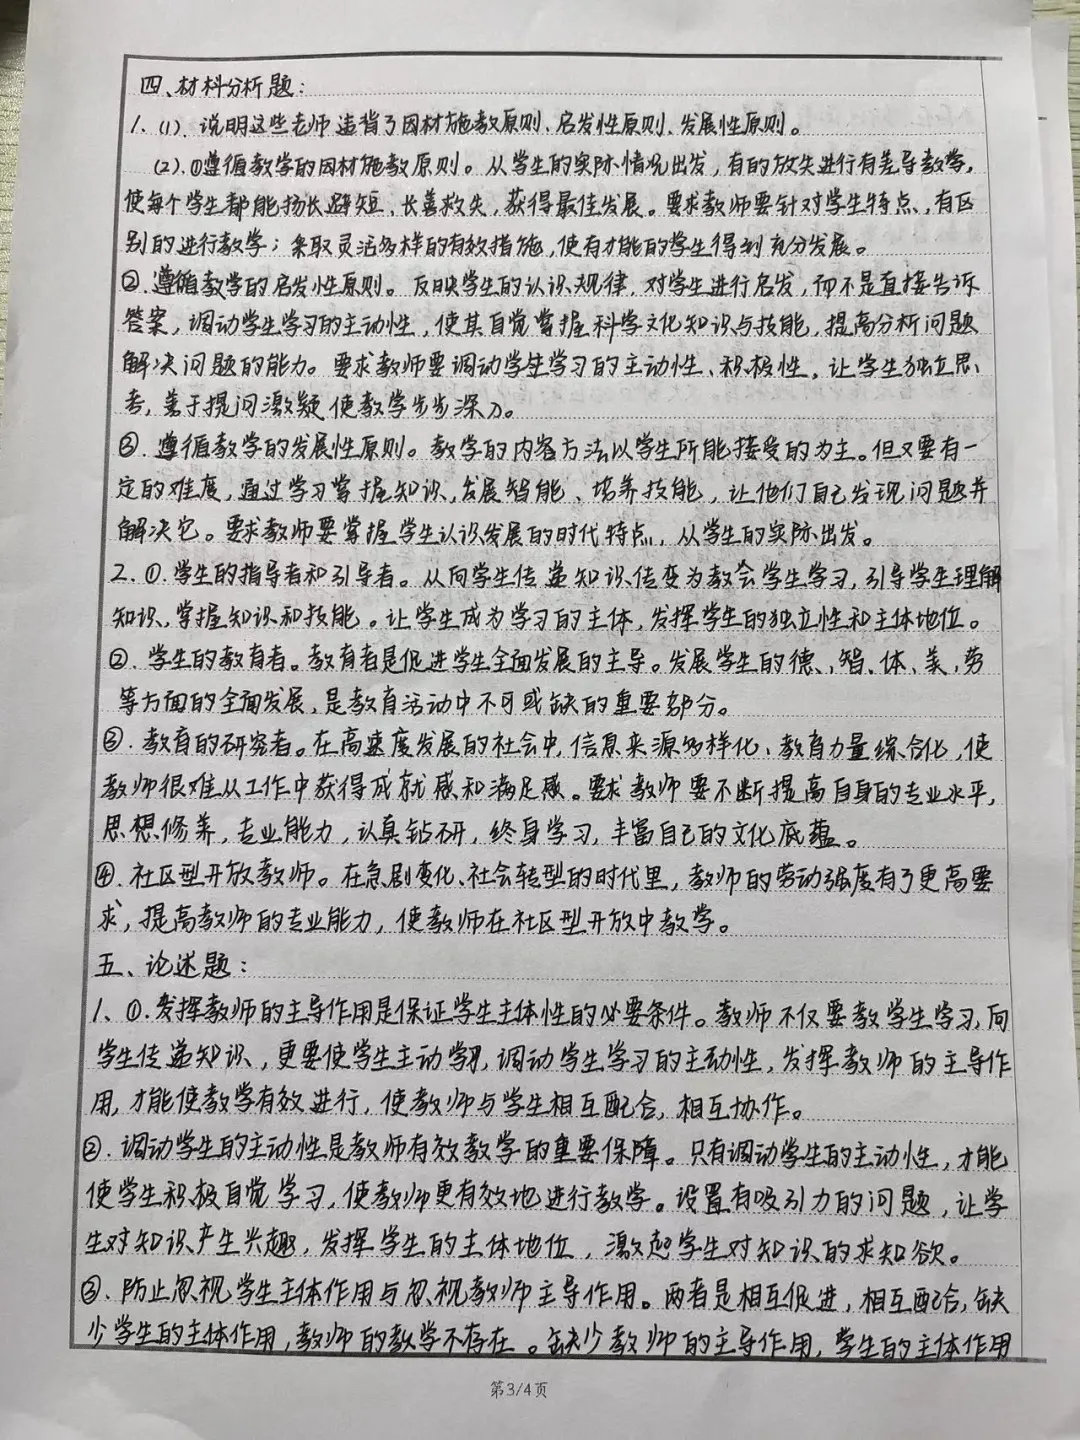 四、材料分析题：
1、(1)、说明这些老师违背了因材施教原则、启发性原则、发展性原则。
(2)、①遵循教学的因材施教原则。从学生的实际情况出发，有的放失进行有差导教学，
使每个学生都能扬长避短、长善救失，获得最佳发展。要求教师要针对学生特点、有区
别的进行教学；采取灵活多样的有效措施，使有才能的学生得到充分发展。
②、遵循教学的启发性原则。反映学生的认识规律，对学生进行启发，而不是直接告诉
答案，调动学生学习的主动性，使其自觉掌握科学文化知识与技能，提高分析问题
解决问题的能力。要求教师要调动学生学习的主动性、积极性，让学生独立思
考，善于提问激疑使教学步步深入。
③、遵循教学的发展性原则。教学的内容方法以学生所能接受的为主。但又要有一
定的难度，通过学习掌握知识，发展智能、培养技能，让他们自己发现问题并
解决它。要求教师要掌握学生认识发展的时代特点，从学生的实际出发。
2、①、学生的指导者和引导者。从向学生传递知识传变为教会学生学习，引导学生理解
知识，掌握知识和技能。让学生成为学习的主体，发挥学生的独立性和主体地位。
②、学生的教育者。教育者是促进学生全面发展的主导。发展学生的德、智、体、美，劳
等方面的全面发展，是教育活动中不可或缺的重要部分。
③、教育的研究者。在高速度发展的社会中，信息来源多样化、教育力量综合化，使
教师很难从工作中获得成就感和满足感。要求教师要不断提高自身的专业水平，
思想修养，专业能力，认真钻研，终身学习，丰富自己的文化底蕴。
④、社区型开放教师。在急剧变化、社会转型的时代里，教师的劳动强度有了更高要
求，提高教师的专业能力，使教师在社区型开放中教学。
五、论述题：
1、①、发挥教师的主导作用是保证学生主体性的必要条件。教师不仅要教学生学习，向
学生传递知识、更要使学生主动学习，调动学生学习的主动性，发挥教师的主导作
用，才能使教学有效进行，使教师与学生相互配合，相互协作。
②、调动学生的主动性是教师有效教学的重要保障。只有调动学生的主动性，才能
使学生积极自觉学习，使教师更有效地进行教学。设置有吸引力的问题，让学
生对知识产生兴趣，发挥学生的主体地位，激起学生对知识的求知欲。
③、防止忽视学生主体作用与忽视教师主导作用。两者是相互促进，相互配合，缺
少学生的主体作用，教师的教学不存在。缺少教师的主导作用，学生的主体作用
第3/4页